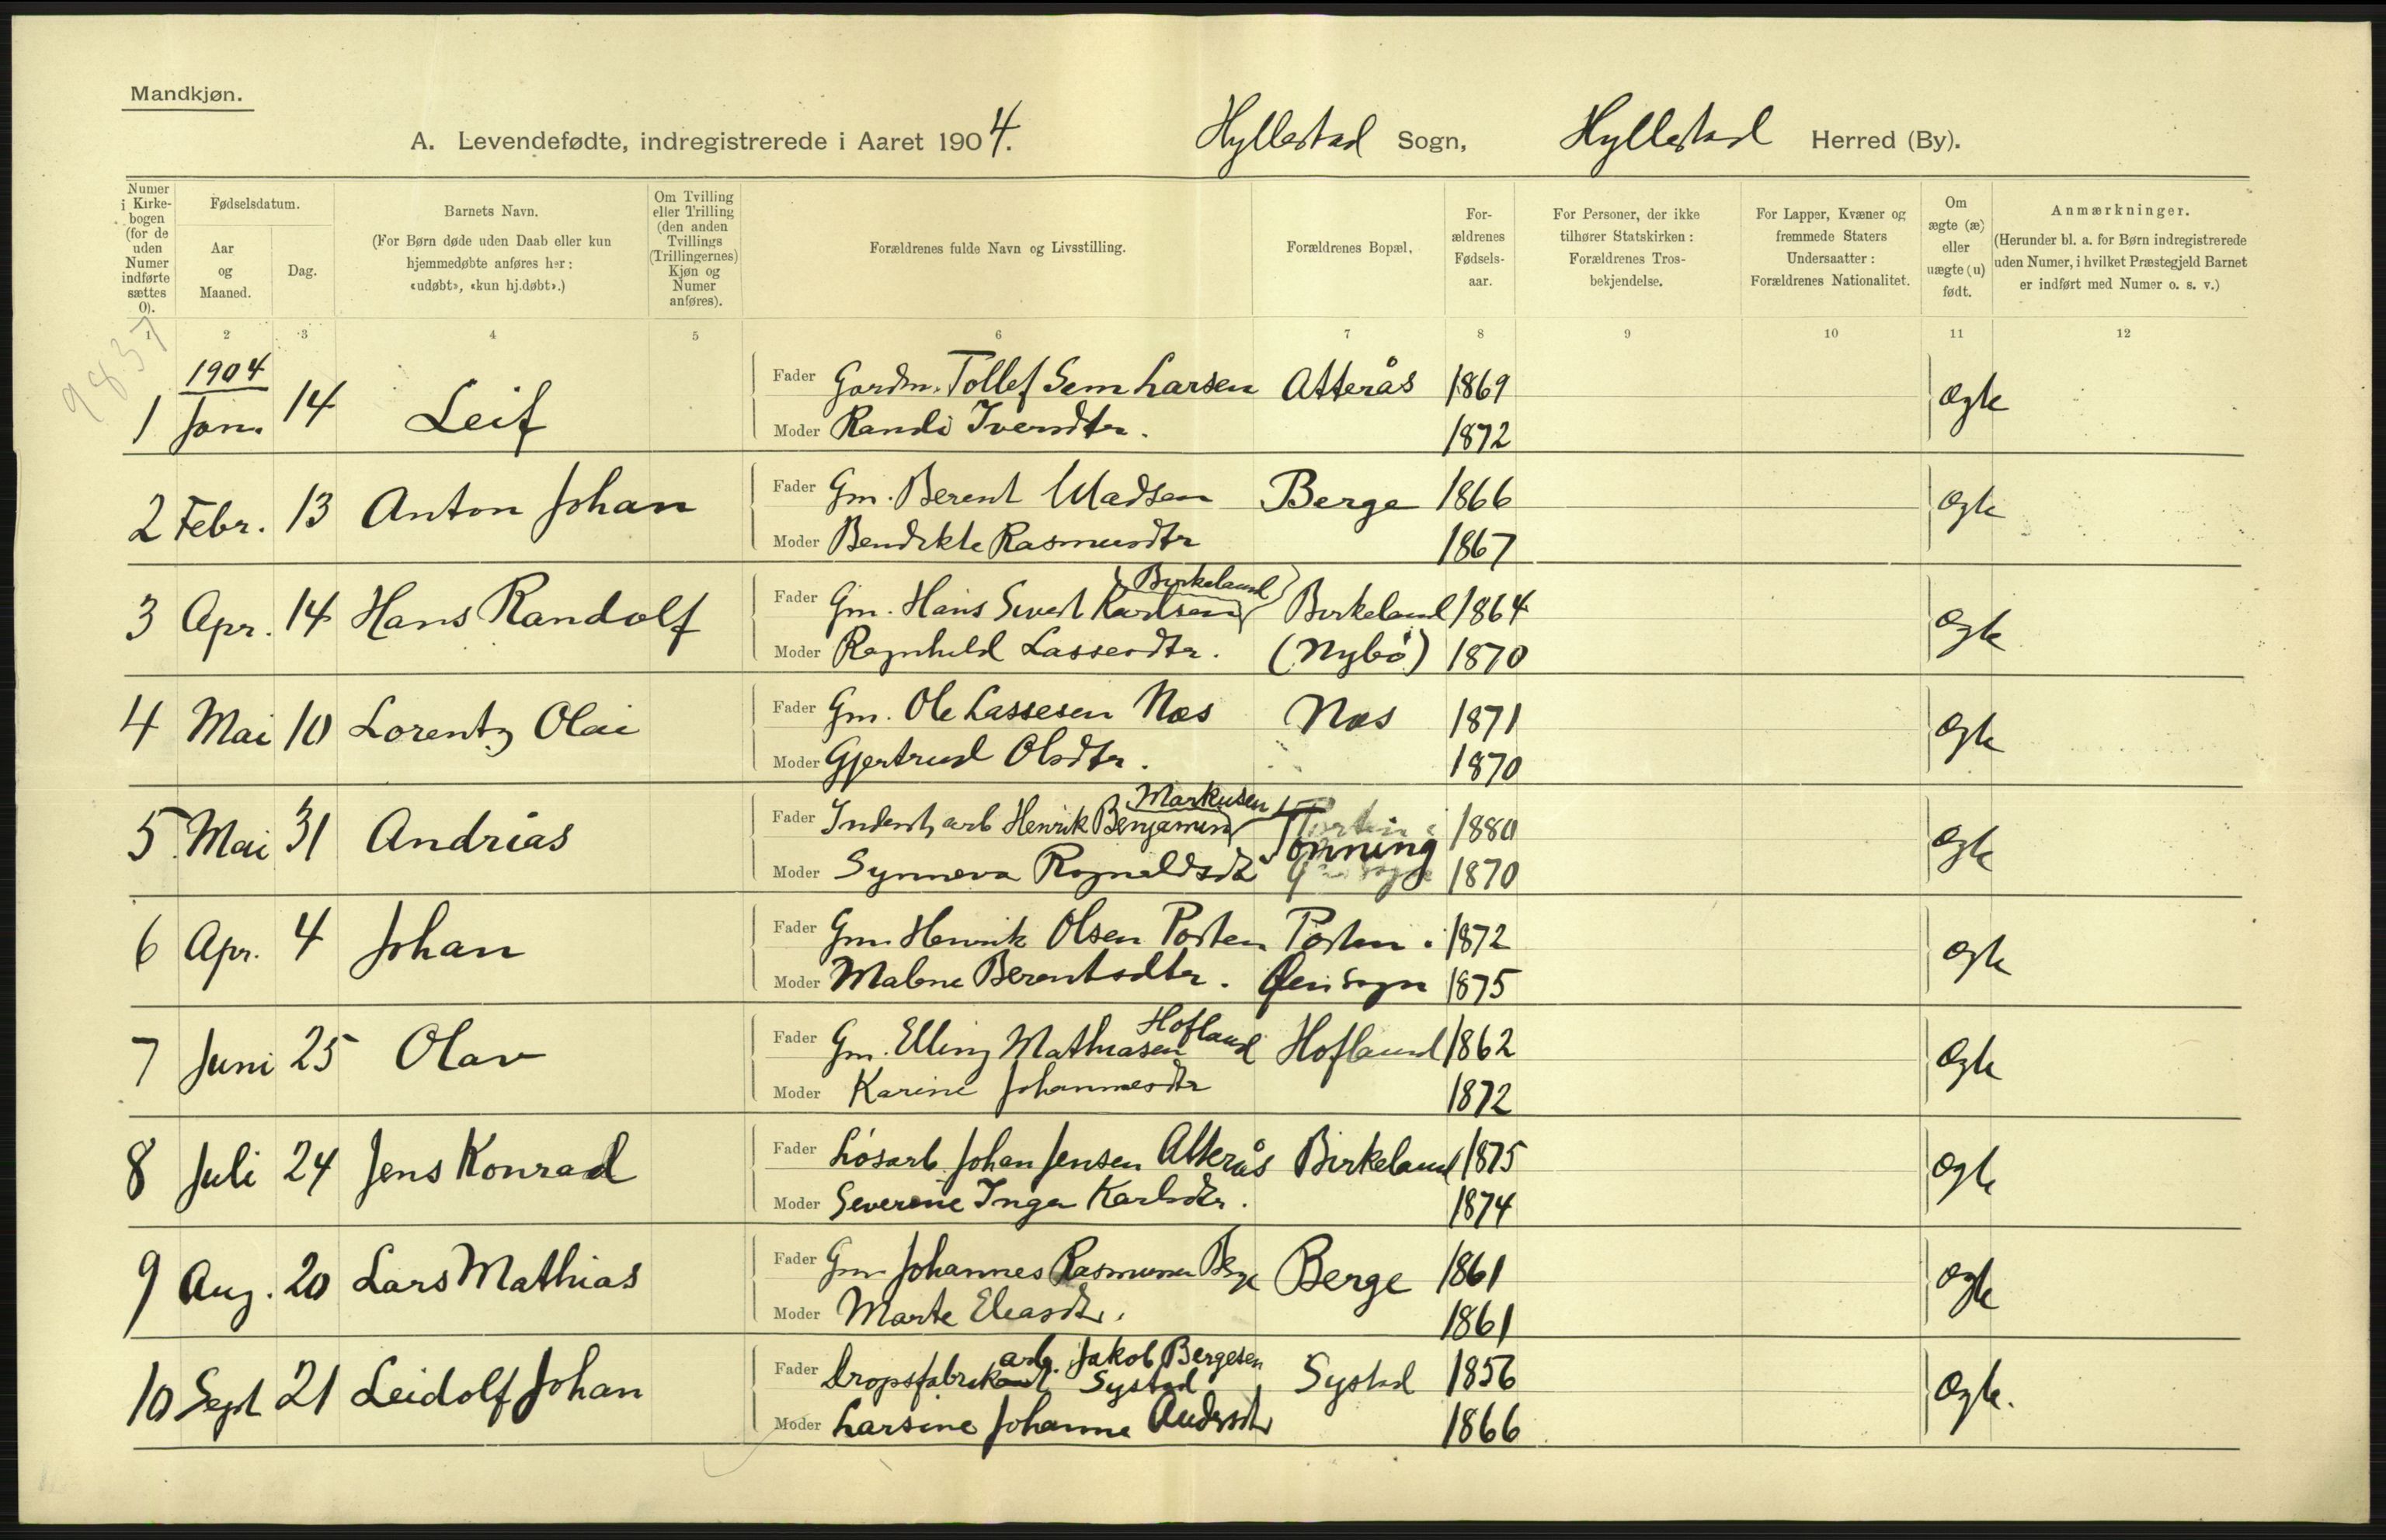 Mandkjøn.
A. Levendefødte, indregistrerede i Aaret 1904. Hyllestad Sogn, Hyllestad Herred (By).
Numer i Kirke-bogen (for de uden Numer indførte sættes 0).
Fødselsdatum.
Aar og Maaned.
Dag.
Barnets Navn.
(For Børn døde uden Daab eller kun hjemmedøbte anføres her: «udøbt», «kun hj.døbt».)
Om Tvilling eller Trilling (den anden Tvillings (Trillingernes) Kjøn og Numer anføres).
Forældrenes fulde Navn og Livsstilling.
Forældrenes Bopæl.
For-ældrenes Fødsels-aar.
For Personer, der ikke tilhører Statskirken: Forældrenes Tros-bekjendelse.
For Lapper, Kvæner og fremmede Staters Undersaatter: Forældrenes Nationalitet.
Om ægte (æ) eller uægte (u) født.
Anmærkninger.
(Herunder bl. a. for Børn indregistrerede uden Numer, i hvilket Præstegjeld Barnet er indført med Numer o. s. v.)
1 2 3 4 5 6 7 8 9 10 11 12
9837
1904
1 Jan. 14 Leif Fader Gardm. Tollef Sem Larsen Atterås 1869 Ægte
Moder Randi Iversdtr. 1872
2 Febr. 13 Anton Johan Fader Gm. Berent Madsen Berge 1866 Ægte
Moder Bendikte Rasmusdtr 1867
Birkeland
3 Apr. 14 Hans Randolf Fader Gm. Hans Sivert Karlsen Birkeland 1864 Ægte
Moder Ragnhild Lassesdtr. (Nybø) 1870
4 Mai 10 Lorentz Olai Fader Gm. Ole Lassesen Næs Næs 1871 Ægte
Moder Gjertrud Olsdtr. 1870
Markusen
5 Mai 31 Andrias Fader arb Henrik Benjamin Tonning 1880 Ægte
Moder Synneva Ragnaldsdtr 1870
6 Apr. 4 Johan Fader Gm. Henrik Olsen Porten Porten. 1872 Ægte
Moder Malene Berentsdtr. Øensogn 1875
Hofland
7 Juni 25 Olav Fader Gm. Elling Mathiasen Hofland 1862 Ægte
Moder Karine Johannesdtr 1872
8 Juli 24 Jens Konrad Fader Løsarb. Johan Jensen Atterås Birkeland 1875 Ægte
Moder Severine Inga Karlsdtr. 1874
9 Aug. 20 Lars Mathias Fader Gm. Johannes Rasmussen Berge Berge 1861 Ægte
Moder Marte Eleasdtr. 1861
arb. Jakob Bergesen
10 Sept 21 Leidolf Johan Fader Dropsfabrik Systad Systad 1856 Ægte.
Moder Larsine Johanne Andersdtr 1866